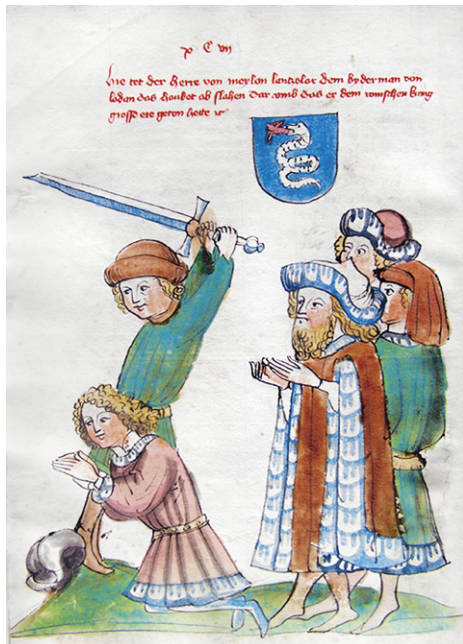 hie tet der herre von meylon lantvlos dem byderman von
lodan das houbet ab slahen dar vmb das er dem romschen kung
grosse ere geton hette